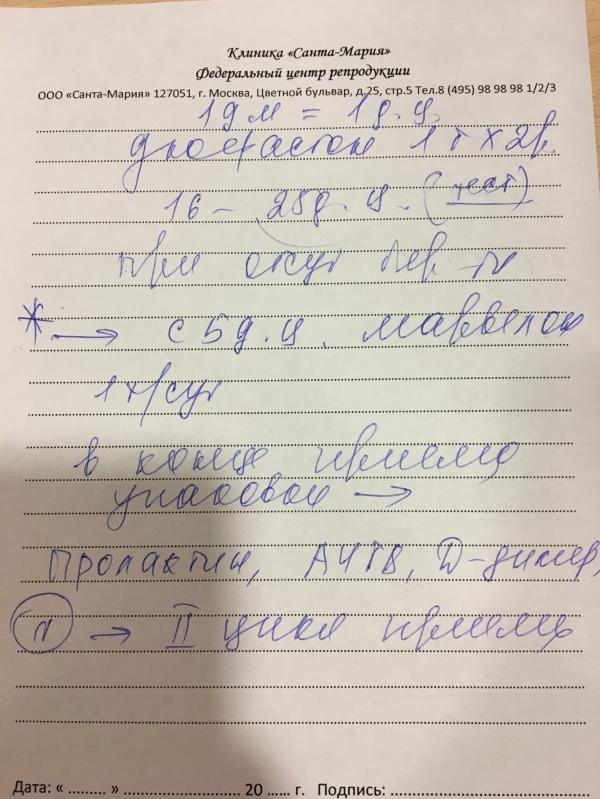 Клиника «Санта-Мария»
Федеральный центр репродукции
ООО «Санта-Мария» 127051, г. Москва, Цветной бульвар, д.25, стр.5 Тел.8 (495) 98 98 98 1/2/3
1 д м = 1 д. ц.
дюфастон 1 т х 2 р.
16 – 25 д. ц. (тест)
при отсут бер-ти
* → с 5 д. ц. марвелон
1 т/сут
в конце приема
упаковки →
Пролактин, АЧТВ, Д-димер,
N → II цикл приема
Дата: « ......... » ............................ 20 ...... г. Подпись: ..........................................